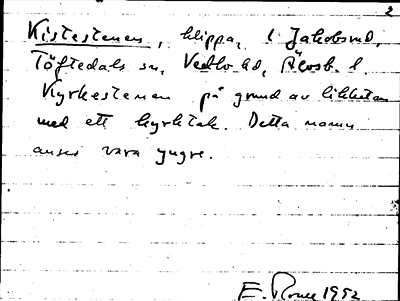 2
Kistestenen, klippa, i Jakobsrud,
Töftedals sn, Vedbo hd, Älvsb. l.
Kyrkestenen på grund av likheten
med ett kyrktak. Detta namn
anses vara yngre.
E. 1952